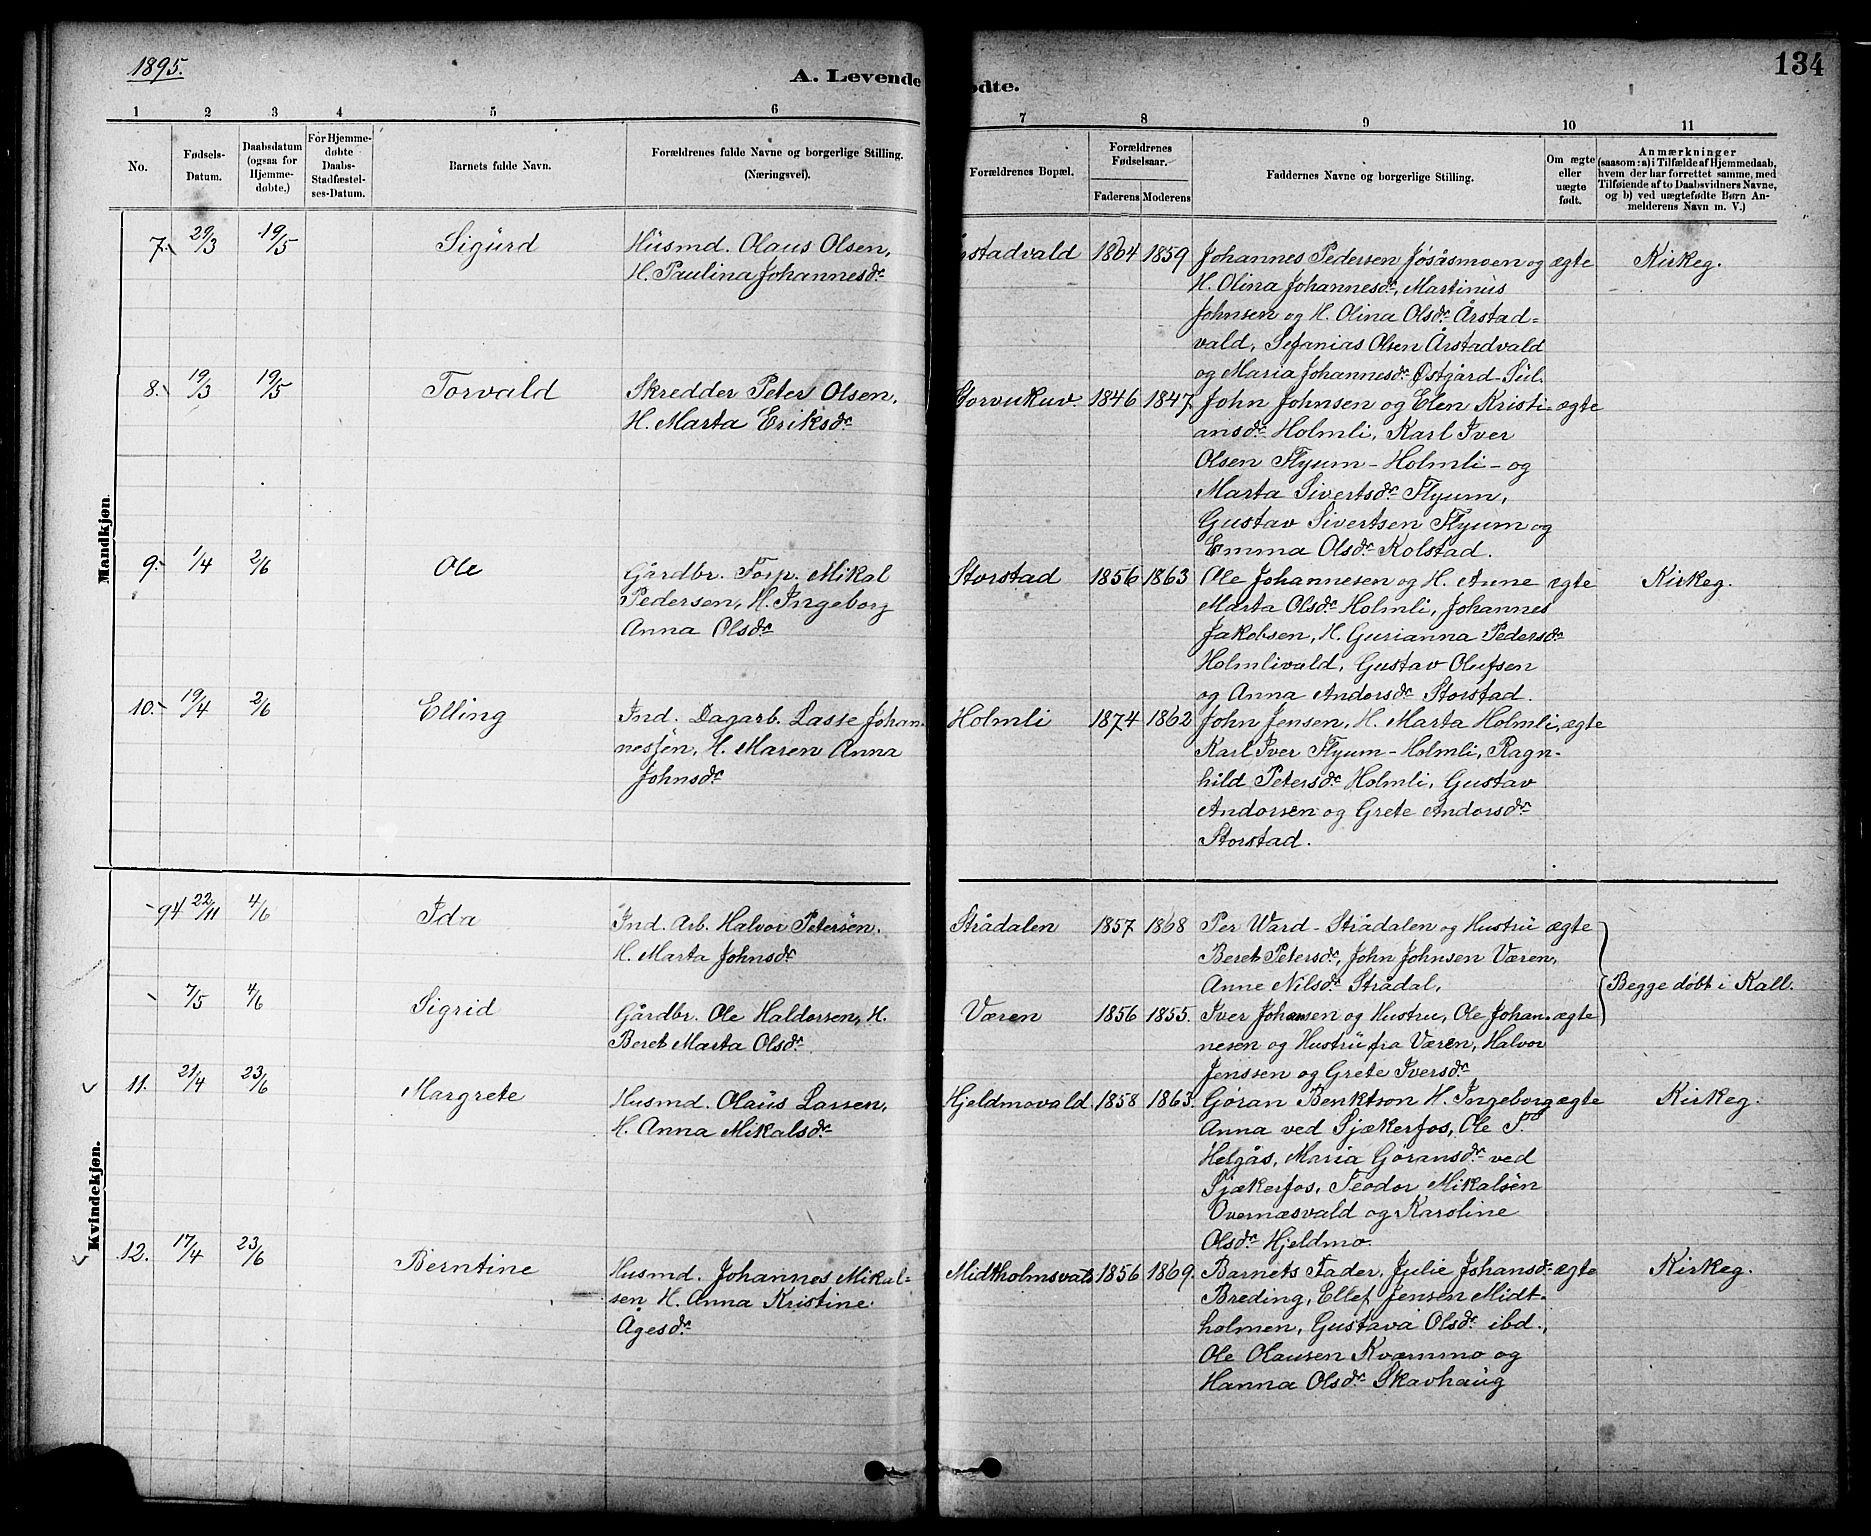 1895.
A. Levende
ødte.
134
1 2 3 4 5 6 7 8 9 10 11
No.
Fødsels-
Datum.
Daabsdatum
(ogsaa for
Hjemme-
døbte.)
For Hjemme-
døbte
Daabs-
Stadfæstel-
ses-Datum.
Barnets fulde Navn.
Forældrenes fulde Navne og borgerlige Stilling.
(Næringsvei).
Forældrenes Bopæl.
Forældrenes
Fødselsaar.
Faderens Moderens
Faddernes Navne og borgerlige Stilling.
Om ægte
eller
uægte
født.
Anmærkninger
(saasom: a) i Tilfælde af Hjemmedaab,
hvem der har forrettet samme, med
Tilføiende af to Daabsvidners Navne,
og b) ved uægtefødte Børn An-
melderens Navn m. V.)
Mandkjøn
7.- 29/3 19/5 Sigurd Husmd. Olaus Olsen,
H. Paulina Johannesdr
rstadvald 1864 1859 Johannes Pedersen Jøsåsmoen og ægte Kirkeg.
H. Olina Johannesdr, Martinus
Johnsen og H. Olina Olsdr Årstad-
vald, Sefanias Olsen Årstadvald
og Maria Johannesdr Østgård-Sul.
8.- 19/3 19/5 Torvald Skredder Peter Olsen,
H. Marta Eriksdr
Storvukuv. 1846 1847 John Johnsen og Elen Kristi- ægte
ansdr Holmli, Karl Iver
Olsen Flyum-Holmli- og
Marta Sivertsdr Flyum,
Gustav Sivertsen Flyum og
Emma Olsdr Kolstad.
9.- 1/4 2/6 Ole Gårdbr. Forp. Mikal
Pedersen, H. Ingeborg
Anna Olsdr
Storstad 1856 1863 Ole Johannesen og H. Anne ægte Kirkeg.
Marta Olsdr Holmli, Johannes
Jakobsen, H. Gurianna Pedersdr
Holmlivald, Gustav Olufsen
og Anna Andorsdr Storstad.
10.- 19/4 2/6 Elling Ind. Dagarb. Lasse Johan
nessen, H. Maren Anna
Johnsdr
Holmli 1874 1862 John Jensen, H. Marta Holmli, ægte
Karl Iver Flyum-Holmli, Ragn-
hild Petersdr Holmli, Gustav
Andorsen og Grete Andorsdr
Storstad.
Kvindekjøn.
- 94 22/11 4/6 Ida Ind. Arb. Halvor Petersen.
H. Marta Johnsdr
Strådalen 1857 1868 Per Ward-Strådalen og Hustru ægte
Beret Petersdr, John Johnsen Væren,
Anne Nilsdr Strådal,
Begge døbt i Kall.
- 7/5 4/6 Sigrid Gårdbr. Ole Haldorsen, H.
Beret Marta Olsdr
Væren 1856 1855. Iver Johansen og Hustru, Ole Johan- ægte
nesen og Hustru fra Væren, Halvor
Jenssen og Grete Iversdr
11. 21/4 23/6 Margrete Husmd. Olaus Larsen,
H. Anna Mikalsdr
Hjeldmovald 1858 1863. Gøran Benktson H. Ingeborg ægte Kirkeg.
Anna ved Sjækerfos, Ole T.
Helgås, Maria Gøransdr ved
Sjækerfos, Teodor Mikalsen
Overnæsvald og Karoline
Olsdr Hjeldmo.
12. 17/4 23/6 Berntine Husmd. Johannes Mikal-
sen H. Anna Kristine
Ågesdr
Midtholmsvald 1856 1869. Barnets Fader, Julie Johansdr ægte Kirkeg.
Breding, Ellef Jensen Midt-
holmen, Gustava Olsdr ibd.,
Ole Olausen Kværnmo og
Hanna Olsdr Skavhaug